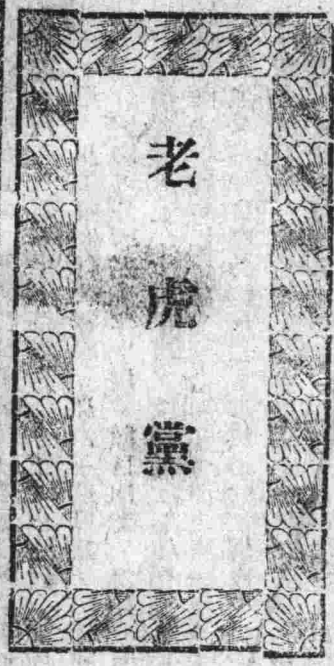 老虎黨